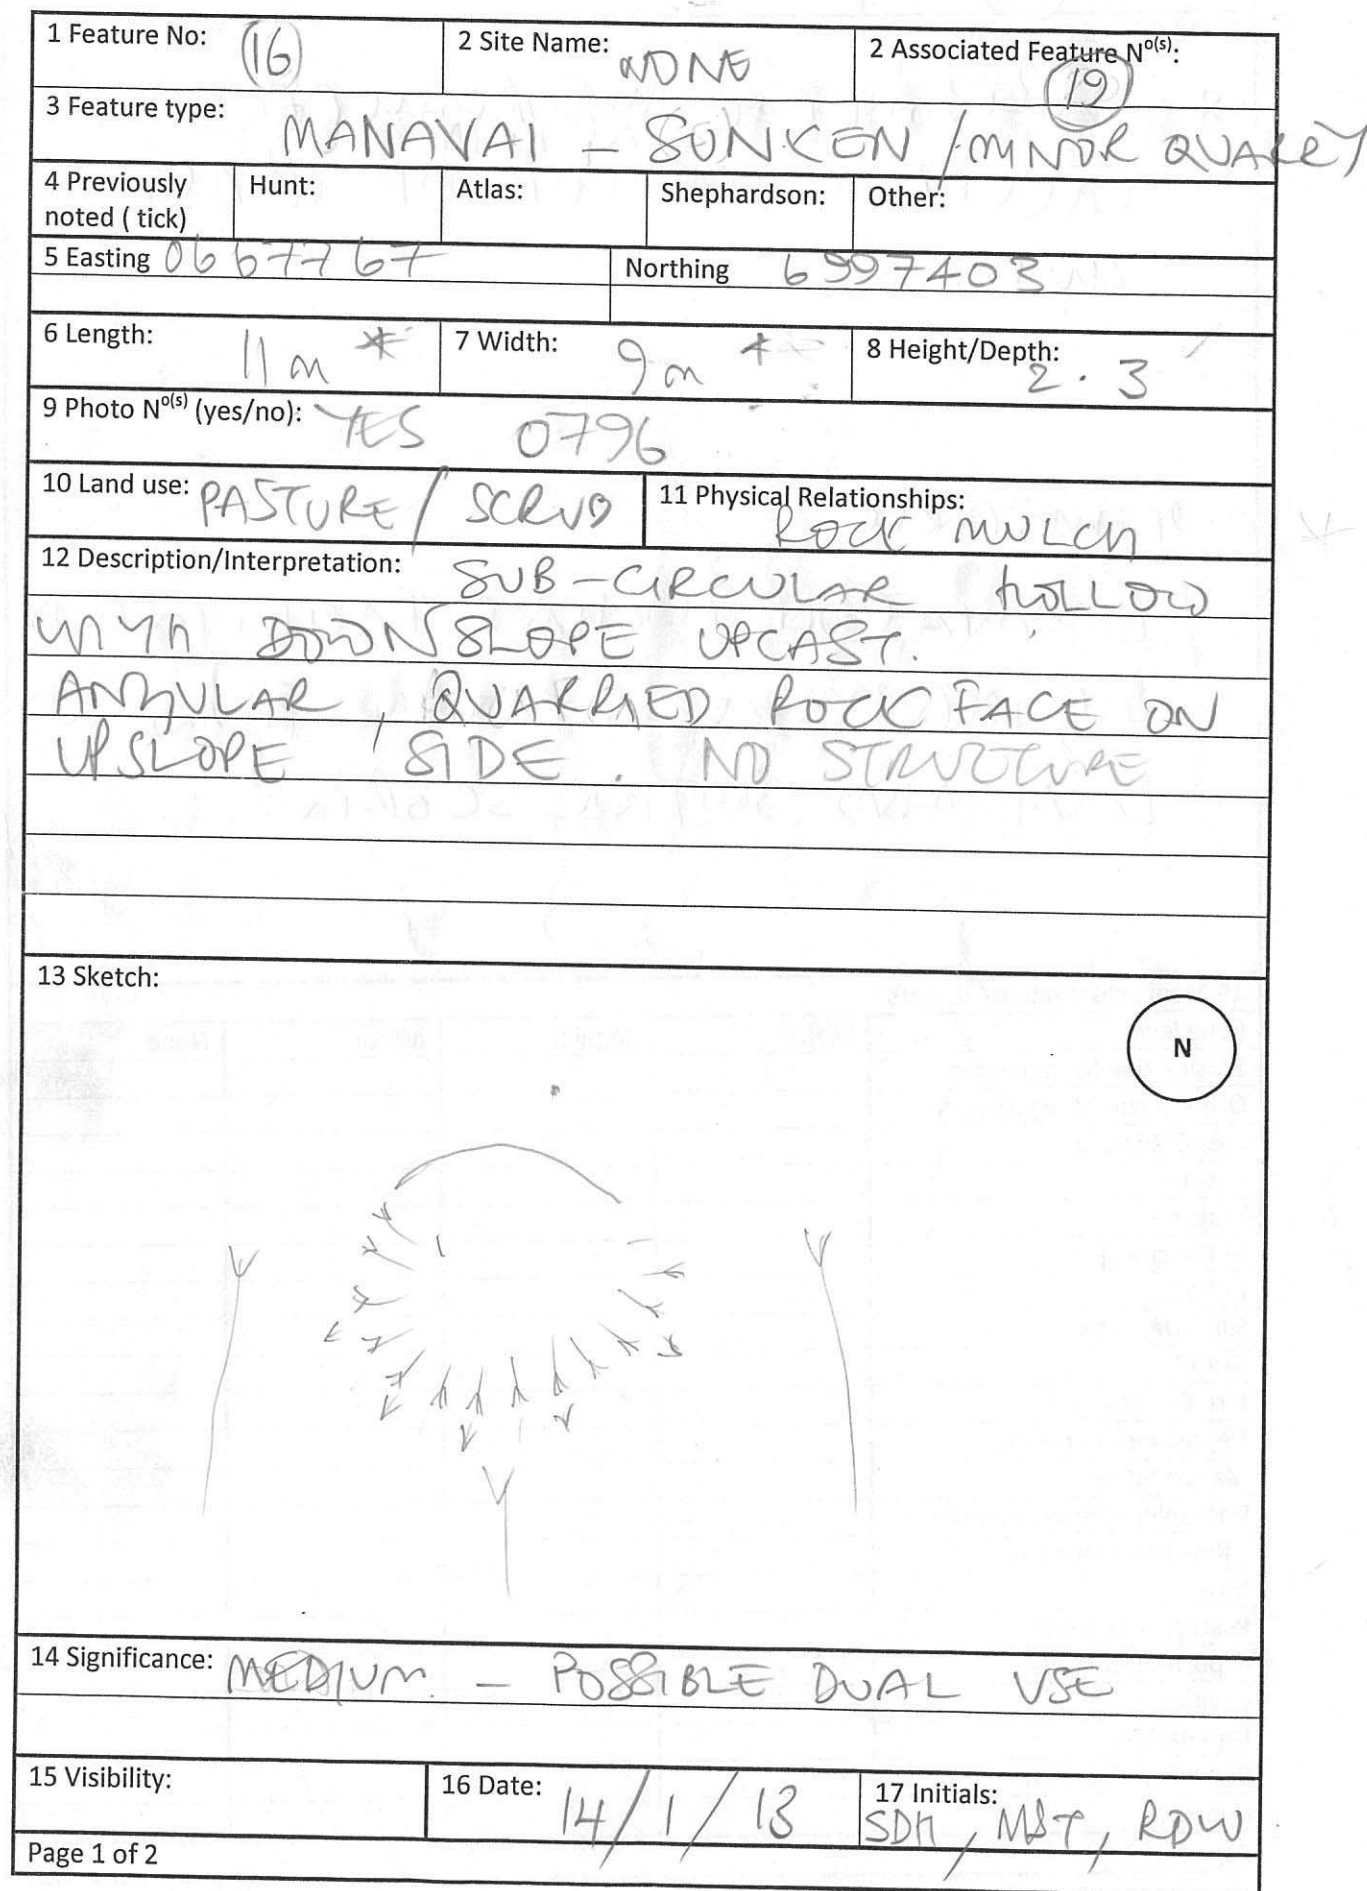 1 Feature No: 16 2 Site Name: NONE 2 Associated Feature No(s): 19
3 Feature type: MANAVAI - SUNKEN / MINOR QUARRY
4 Previously noted ( tick) Hunt: Atlas: Shephardson: Other:
5 Easting 0667767 Northing 6997403
6 Length: 11m * 7 Width: 9m * 8 Height/Depth: 2.3
9 Photo No(s) (yes/no): YES 0796
10 Land use: PASTURE / SCRUB 11 Physical Relationships: ROCK MULCH
12 Description/Interpretation: SUB-CIRCULAR HOLLOW
WITH DOWNSLOPE UPCAST.
ANGULAR, QUARRIED ROCK FACE ON
UPSLOPE SIDE. NO STRUCTURE
13 Sketch:
N
14 Significance: MEDIUM - POSSIBLE DUAL USE
15 Visibility: 16 Date: 14/1/13 17 Initials: SDH, MST, RDW
Page 1 of 2